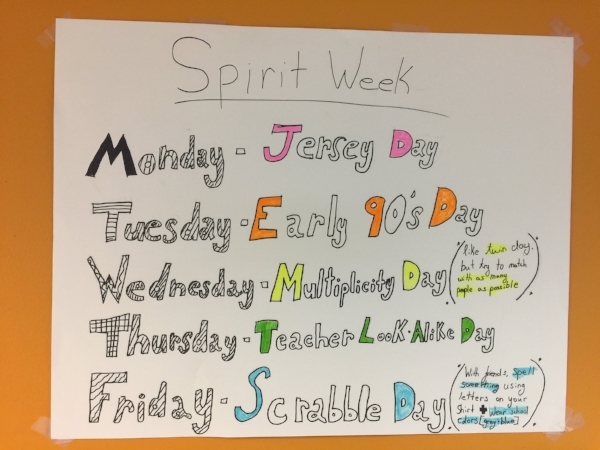 Spirit Week
Monday - Jersey Day
Tuesday - Early 90's Day
Wednesday - Multiplicity Day
(like twin day,
but try to match
with as many
people as possible)
Thursday - Teacher Look-Alike Day
Friday - Scrabble Day
(With friends, spell
something using
letters on your
shirt + wear school
colors [gray+blue])